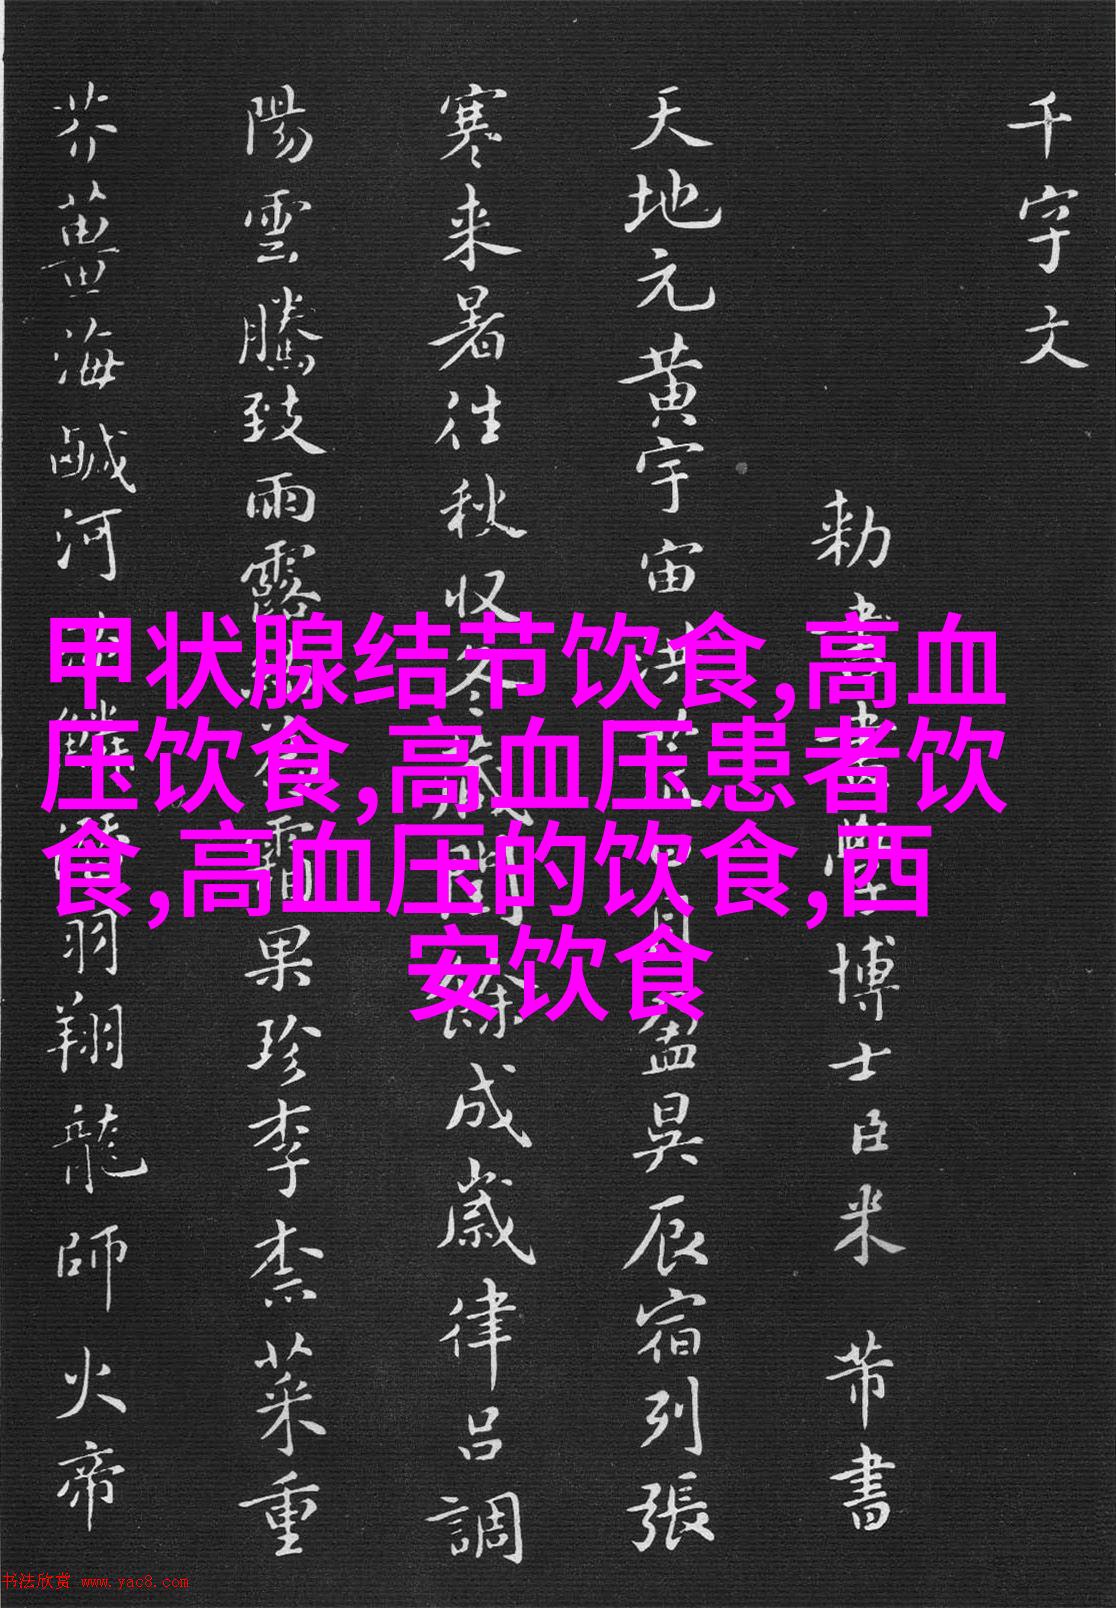 千字文
勅書畫學博士臣米芾書
天地元黄宇宙洪荒日月盈昃辰宿列張
寒来暑往秋収冬藏閏餘成歲律吕調
陽雲騰致雨露結為霜果珍李柰菜重
芥薑海鹹河淡鱗潛羽翔龍師火帝
甲状腺结节饮食,高血
压饮食,高血压患者饮
食,高血压的饮食,西
安饮食
书法欣赏 www.yac8.com